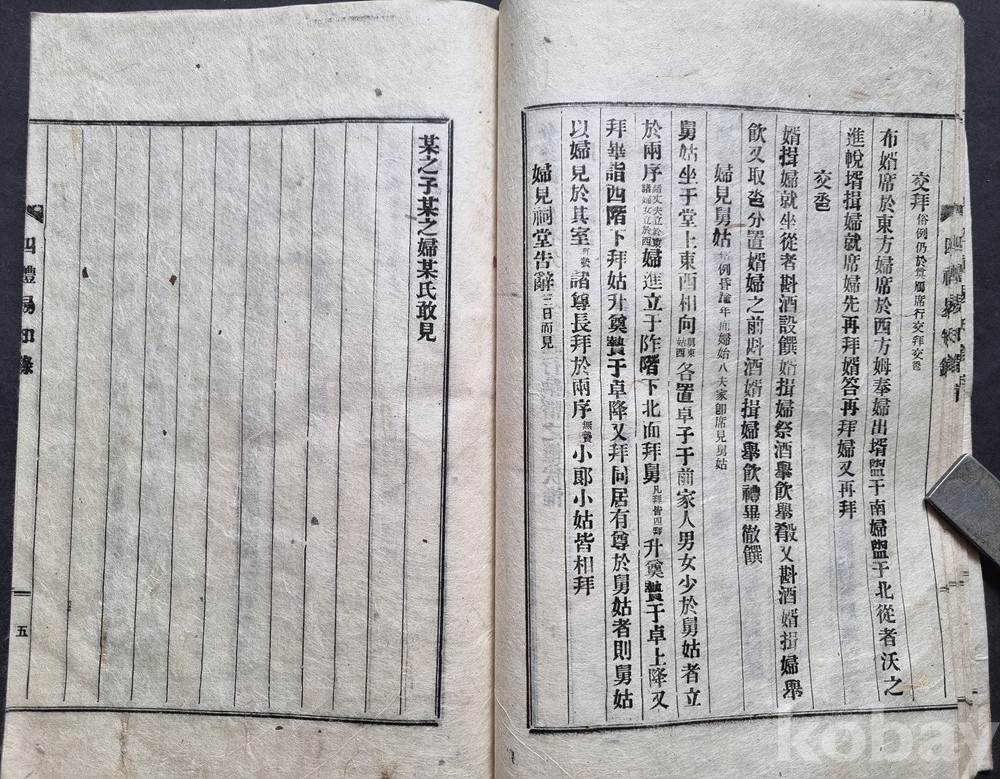 交拜 俗例仍於堂廳席行交拜交巹
布婿席於東方婦席於西方姆奉婦出壻盥于南婦盥于北從者沃之
進帨壻揖婦就席婦先再拜婿答再拜婦又再拜
交巹
婿揖婦就坐從者斟酒設饌婿揖婦祭酒擧飮擧殽又斟酒婿揖婦擧
飮又取巹分置婿婦之前斟酒婿揖婦擧飮禮畢徹饌
婦見舅姑 俗例昏踰年而婦始入夫家卽席見舅姑
舅姑坐于堂上東西相向 舅東姑西 各置卓子于前家人男女少於舅姑者立
於兩序 諸丈夫立於東諸婦女立於西 婦進立于阼階下北面拜舅 凡拜皆四拜 升奠贄于卓上降又
拜畢詣西階下拜姑升奠贄于卓降又拜同居有尊於舅姑者則舅姑
以婦見於其室 諸尊長拜於兩序 無贄 小郞小姑皆相拜
婦見祠堂告辭 三日而見
某之子某之婦某氏敢見
四禮易知錄
五
kobay